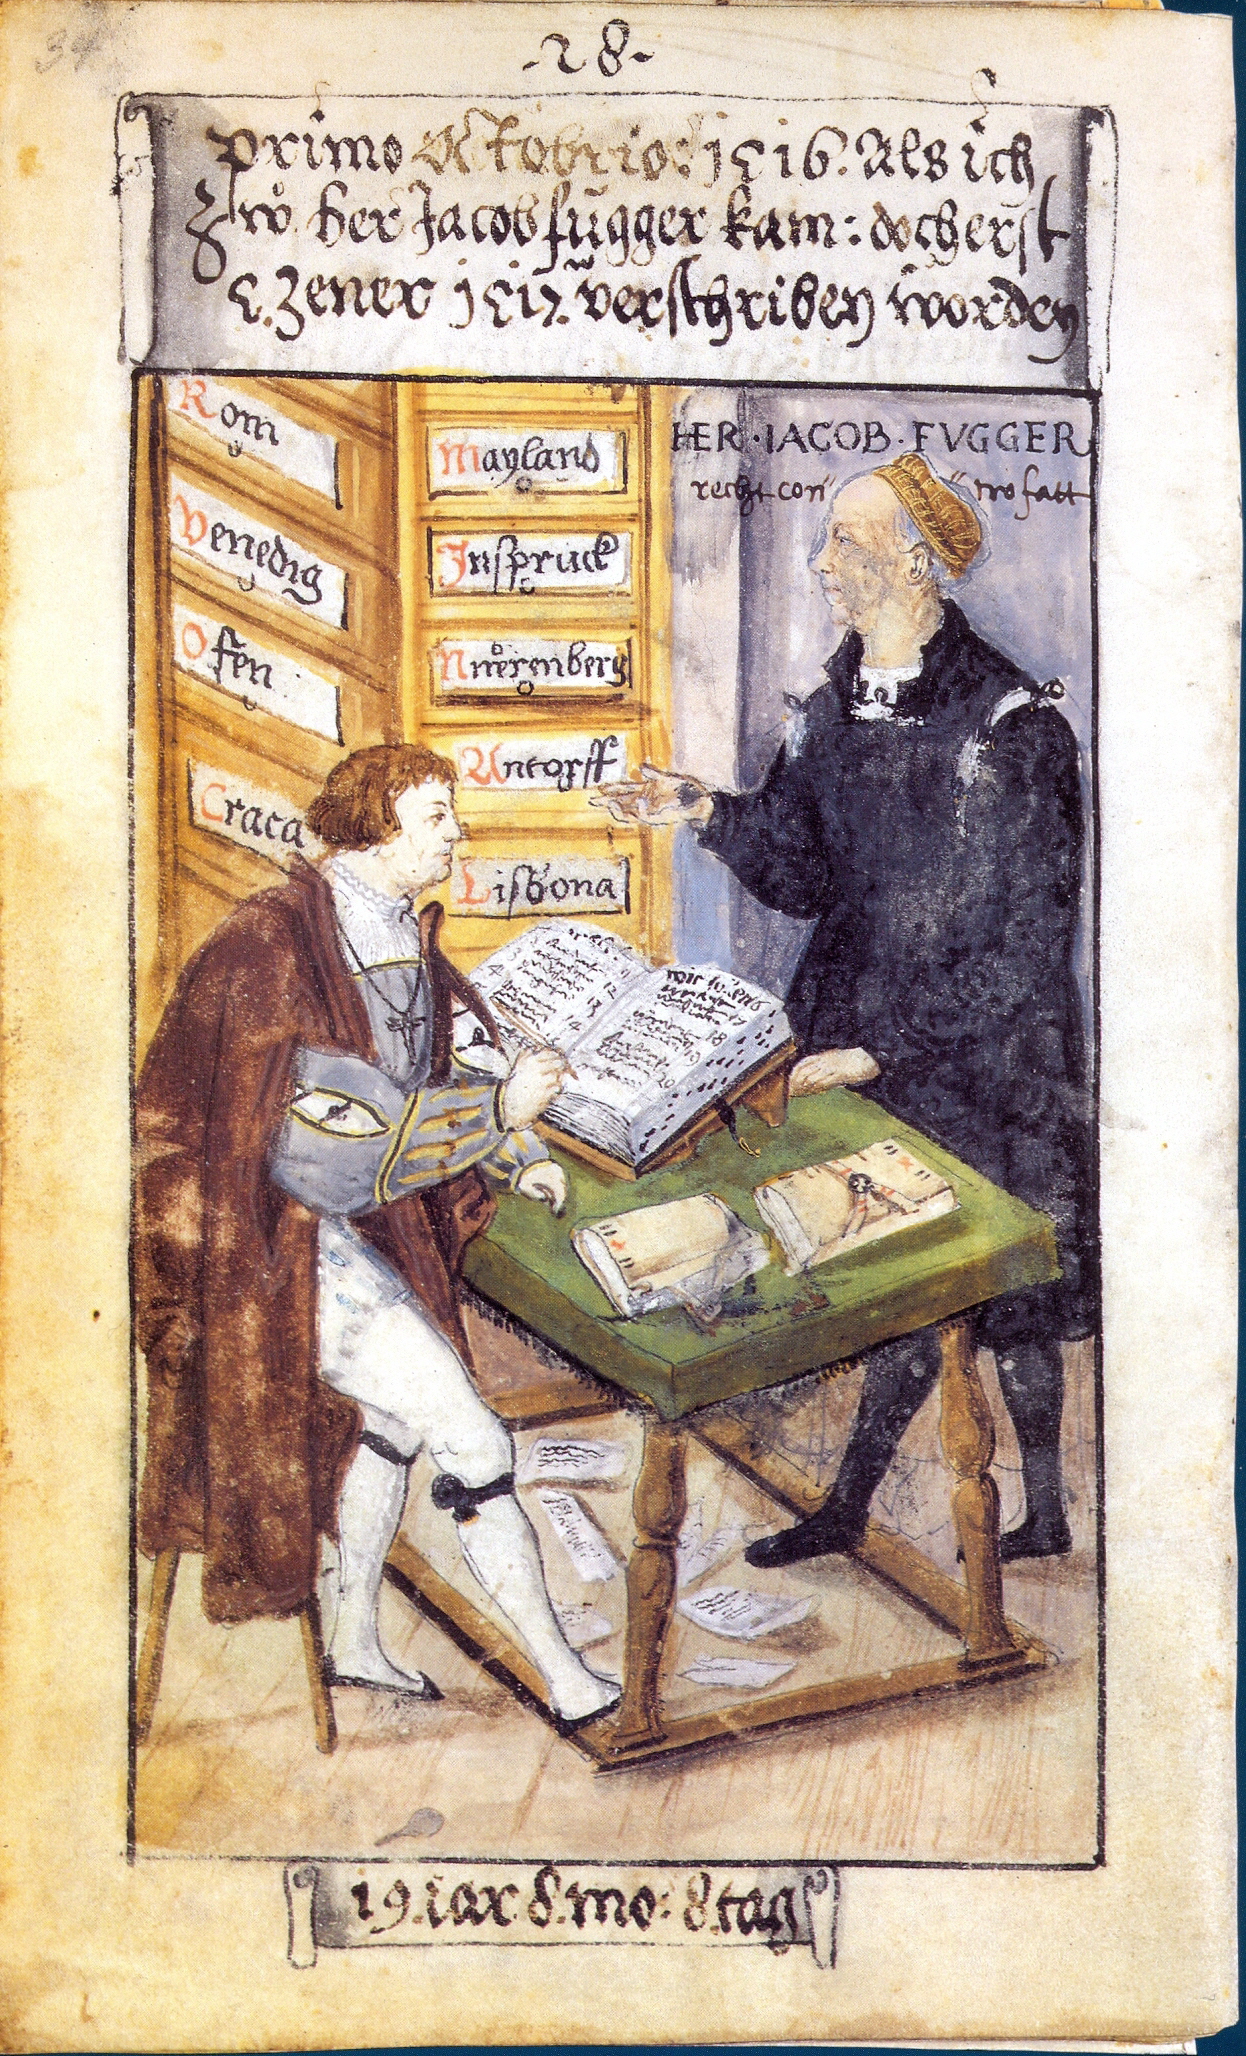 34
-28-
primo Octobrio: 1516. Als ich
zwo her Jacob fugger kam: docherst
5. Zener 1517. verschriben worden
Rom
Venedig
Ofen
Craca
Mayland
Inspruck
Nuerenberg
Antorff
Lisbona
HER · IACOB · FVGGER
recht con trofatt
19. iar 8. mo: 8. tag